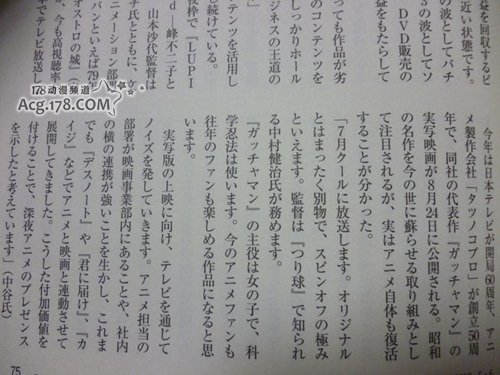 益を回収するビ
近い状態です。
の波としてパチ
3の波としてソ
DVD販売の
益をもたらして
っても作品が劣
のコンテンツを
しっかりホール
ジネスの王道の
テンツを活用し
続けている。
夜枠で『LUPI
d―峰不二子と
山本沙代監督は
氏とともに、
ニメーション部
パンといえば79
オストロの城』(
、今も高視聴率
年でテレビ放送し
今年は日本テレビが開局60周年、アニ
メ製作会社「タツノコプロ」が創立50周
年で、同社の代表作『ガッチャマン』の
実写映画が8月24日に公開される。昭和
の名作を今の世に蘇らせる取り組みとし
て注目されるが、実はアニメ自体も復活
することが分かった。
「7月クールに放送します。オリジナル
とはまったく別物で、スピンオフの極み
といえます。監督は『つり球』で知られ
る中村健治氏が務めます。
『ガッチャマン』の主役は女の子で、科
学忍法は使います。今のアニメファンも
往年のファンも楽しめる作品になると思
います。
実写版の上映に向け、テレビを通じて
ノイズを発していきます。アニメ担当の
部署が映画事業部内にあることや、社内
の横の連携が強いことを生かし、これま
でも『デスノート』や『君に届け』、『カ
イジ』などでアニメと映画と連動させて
展開してきました。こうした付加価値を
付けることで、深夜アニメのプレゼンス
を示したと考えています」(中谷氏)
75
178动漫频道
Acg.178.com